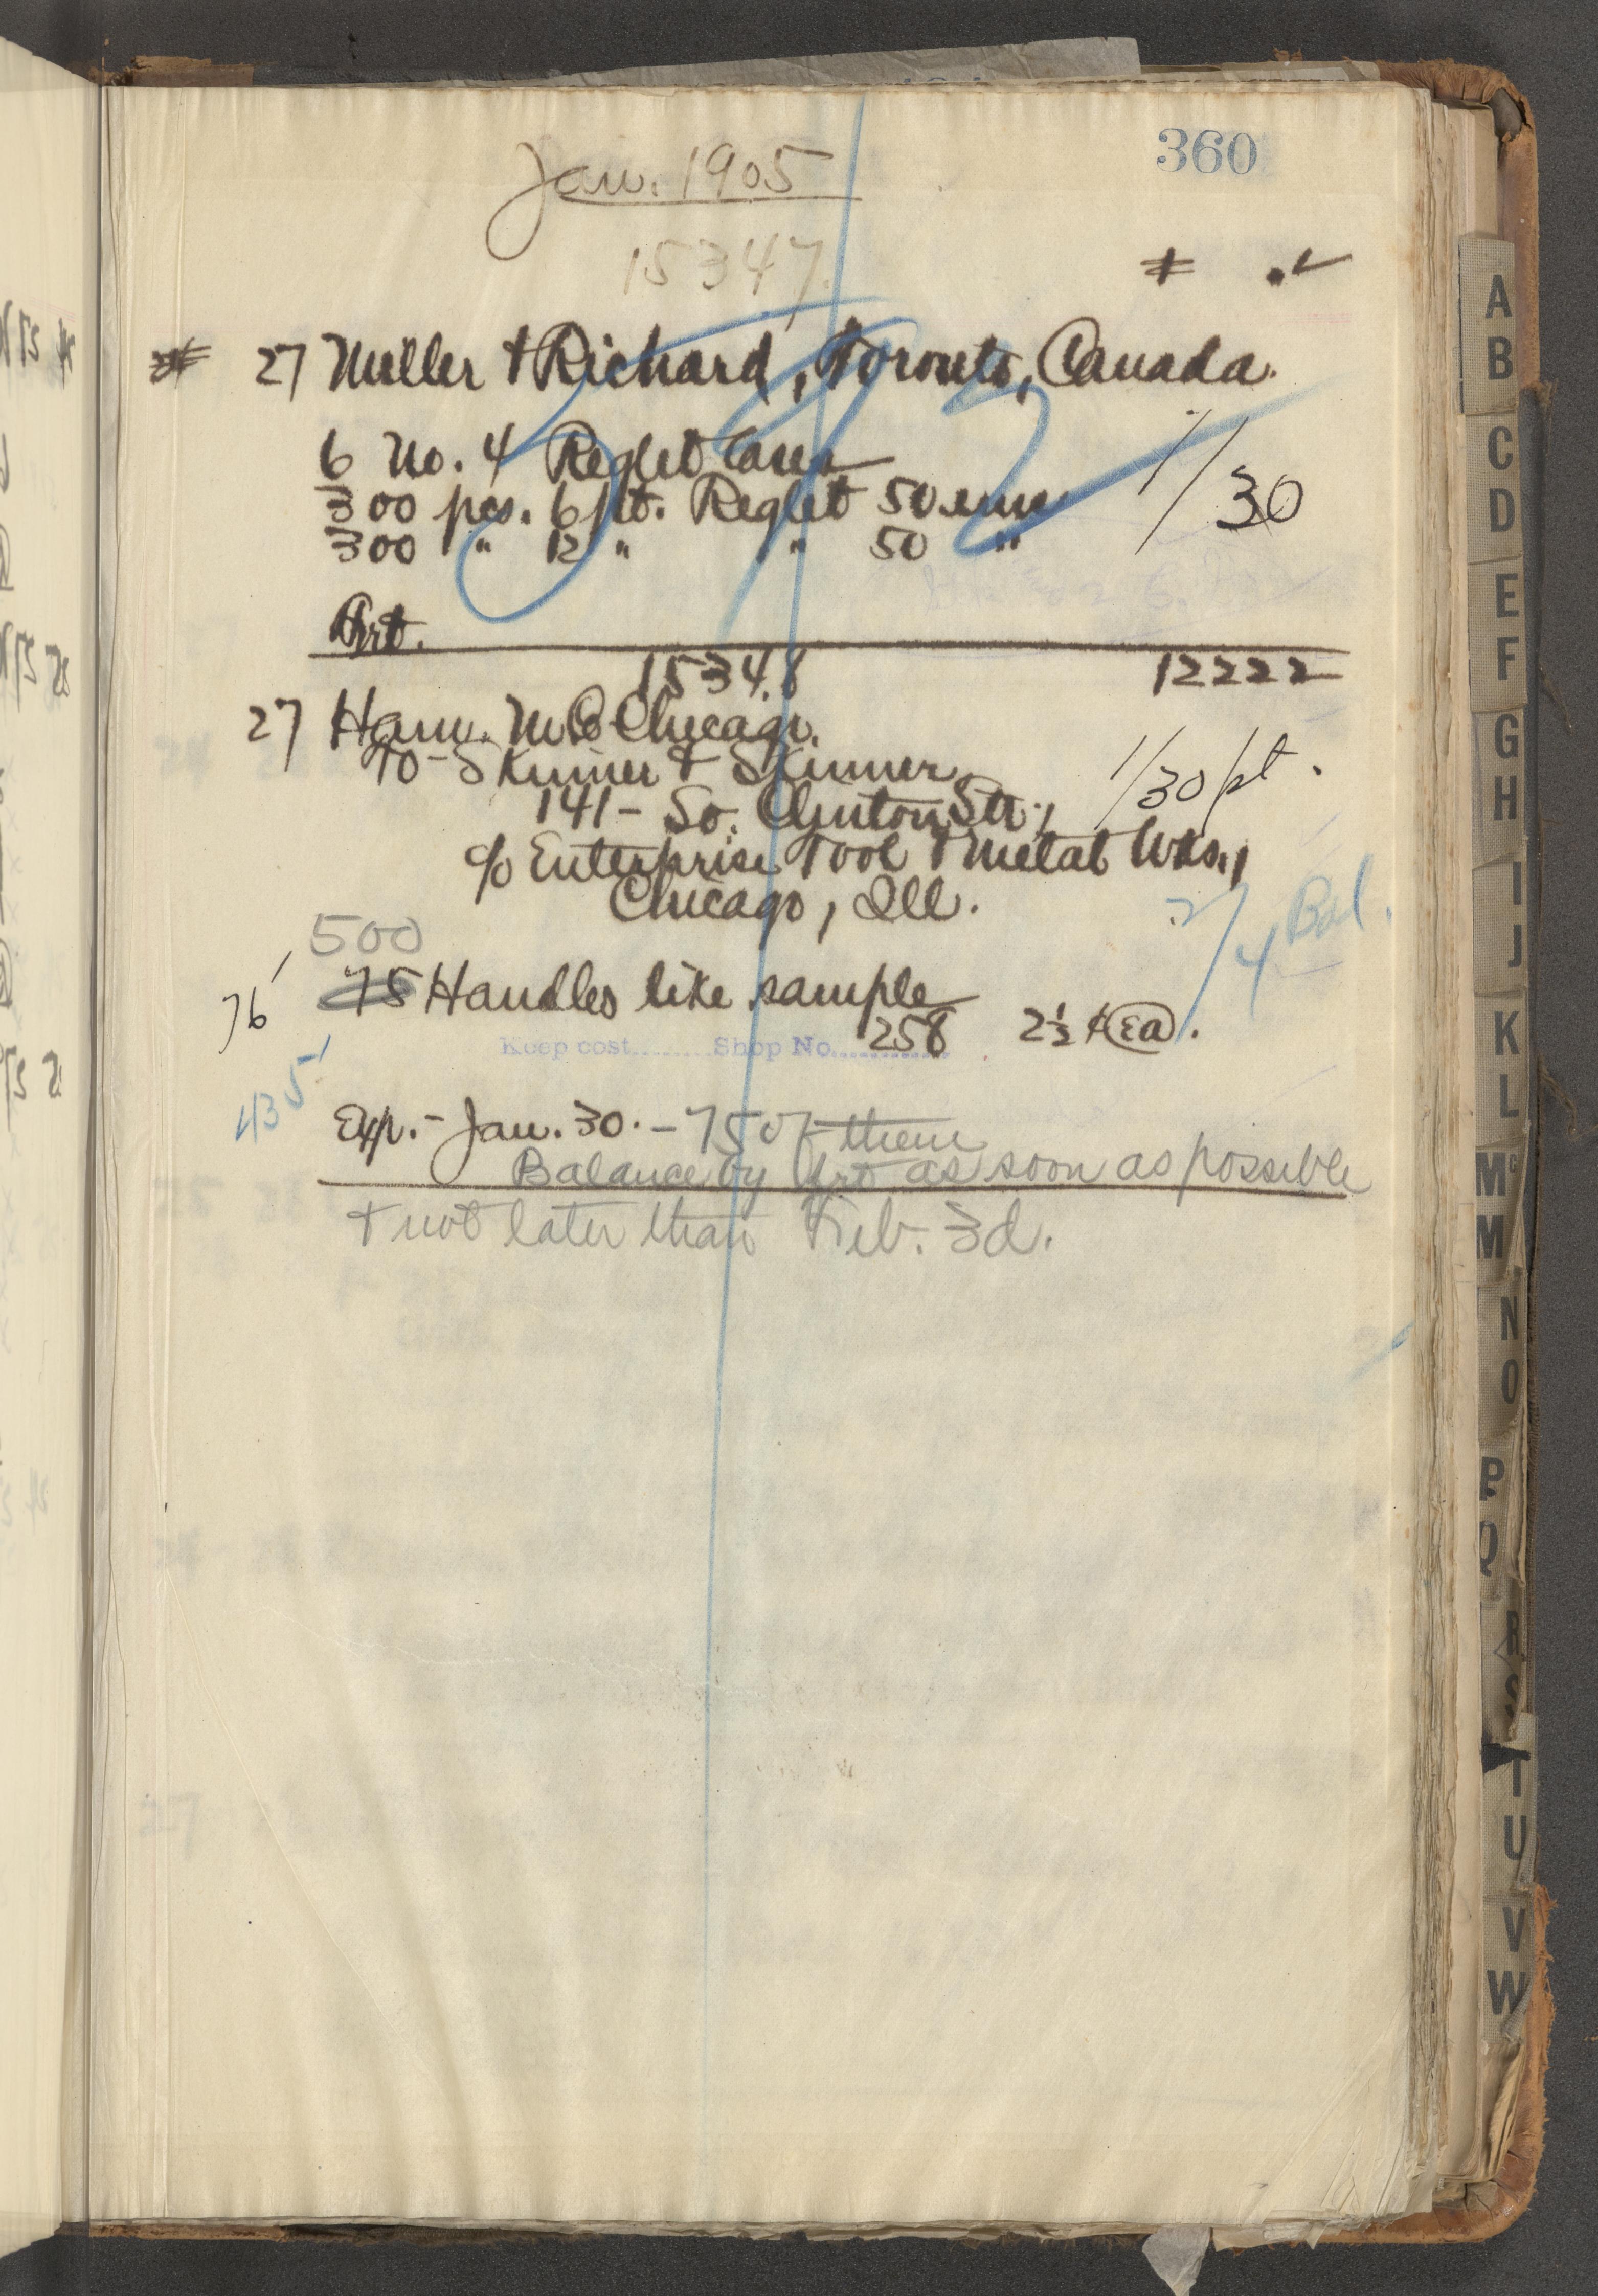 360
Jan. 1905
15347
27 Miller & Richard, Toronto, Canada.
6 No. 4 Reglet Cases
300 pcs. 6 pt. Reglet 50 ems
300 " 12 " " 50 "
1/30
Frt.
15348 12222
27 Ham. M Co Chicago.
To - Skinner & Skinner,
141 - So. Clinton St.,
1/30 pt.
c/o Enterprise Tool & Metal Wks.,
Chicago, Ill.
2/4 Bal.
500
76 75 Handles like sample
258 2½ ¢ ea.
Keep cost........Shop No............
435
Exp. - Jan. 30. - 75 of them
Balance by Frt as soon as possible
& not later than Feb. 3d.
A
B
C
D
E
F
G
H
I
J
K
L
Mc
M
N
O
P
Q
R
S
T
U
V
W